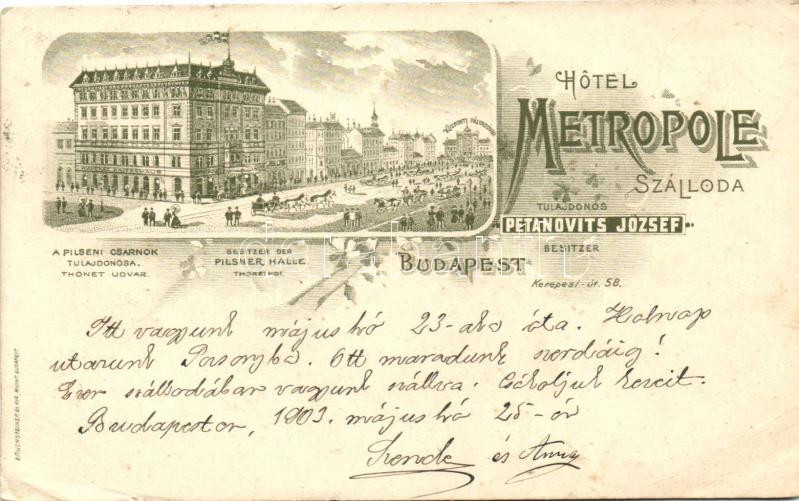 HÔTEL
METROPOLE
SZÁLLODA
TULAJDONOS
PETANOVITS JÓZSEF
BESITZER
BUDAPEST
Kerepesi-út. 58.
A PILSENI CSARNOK
TULAJDONOSA.
THONET UDVAR.
BESITZER DER
PILSNER HALLE
THONETHOF.
Itt vagyunk május hó 23-ka óta. Holnap
utazunk Pozsonyba. Ott maradunk szerdáig!
Ezen szállodában vagyunk szállva. Csókoljuk kezeit.
Budapesten, 1903. május hó 25-én
Szende és